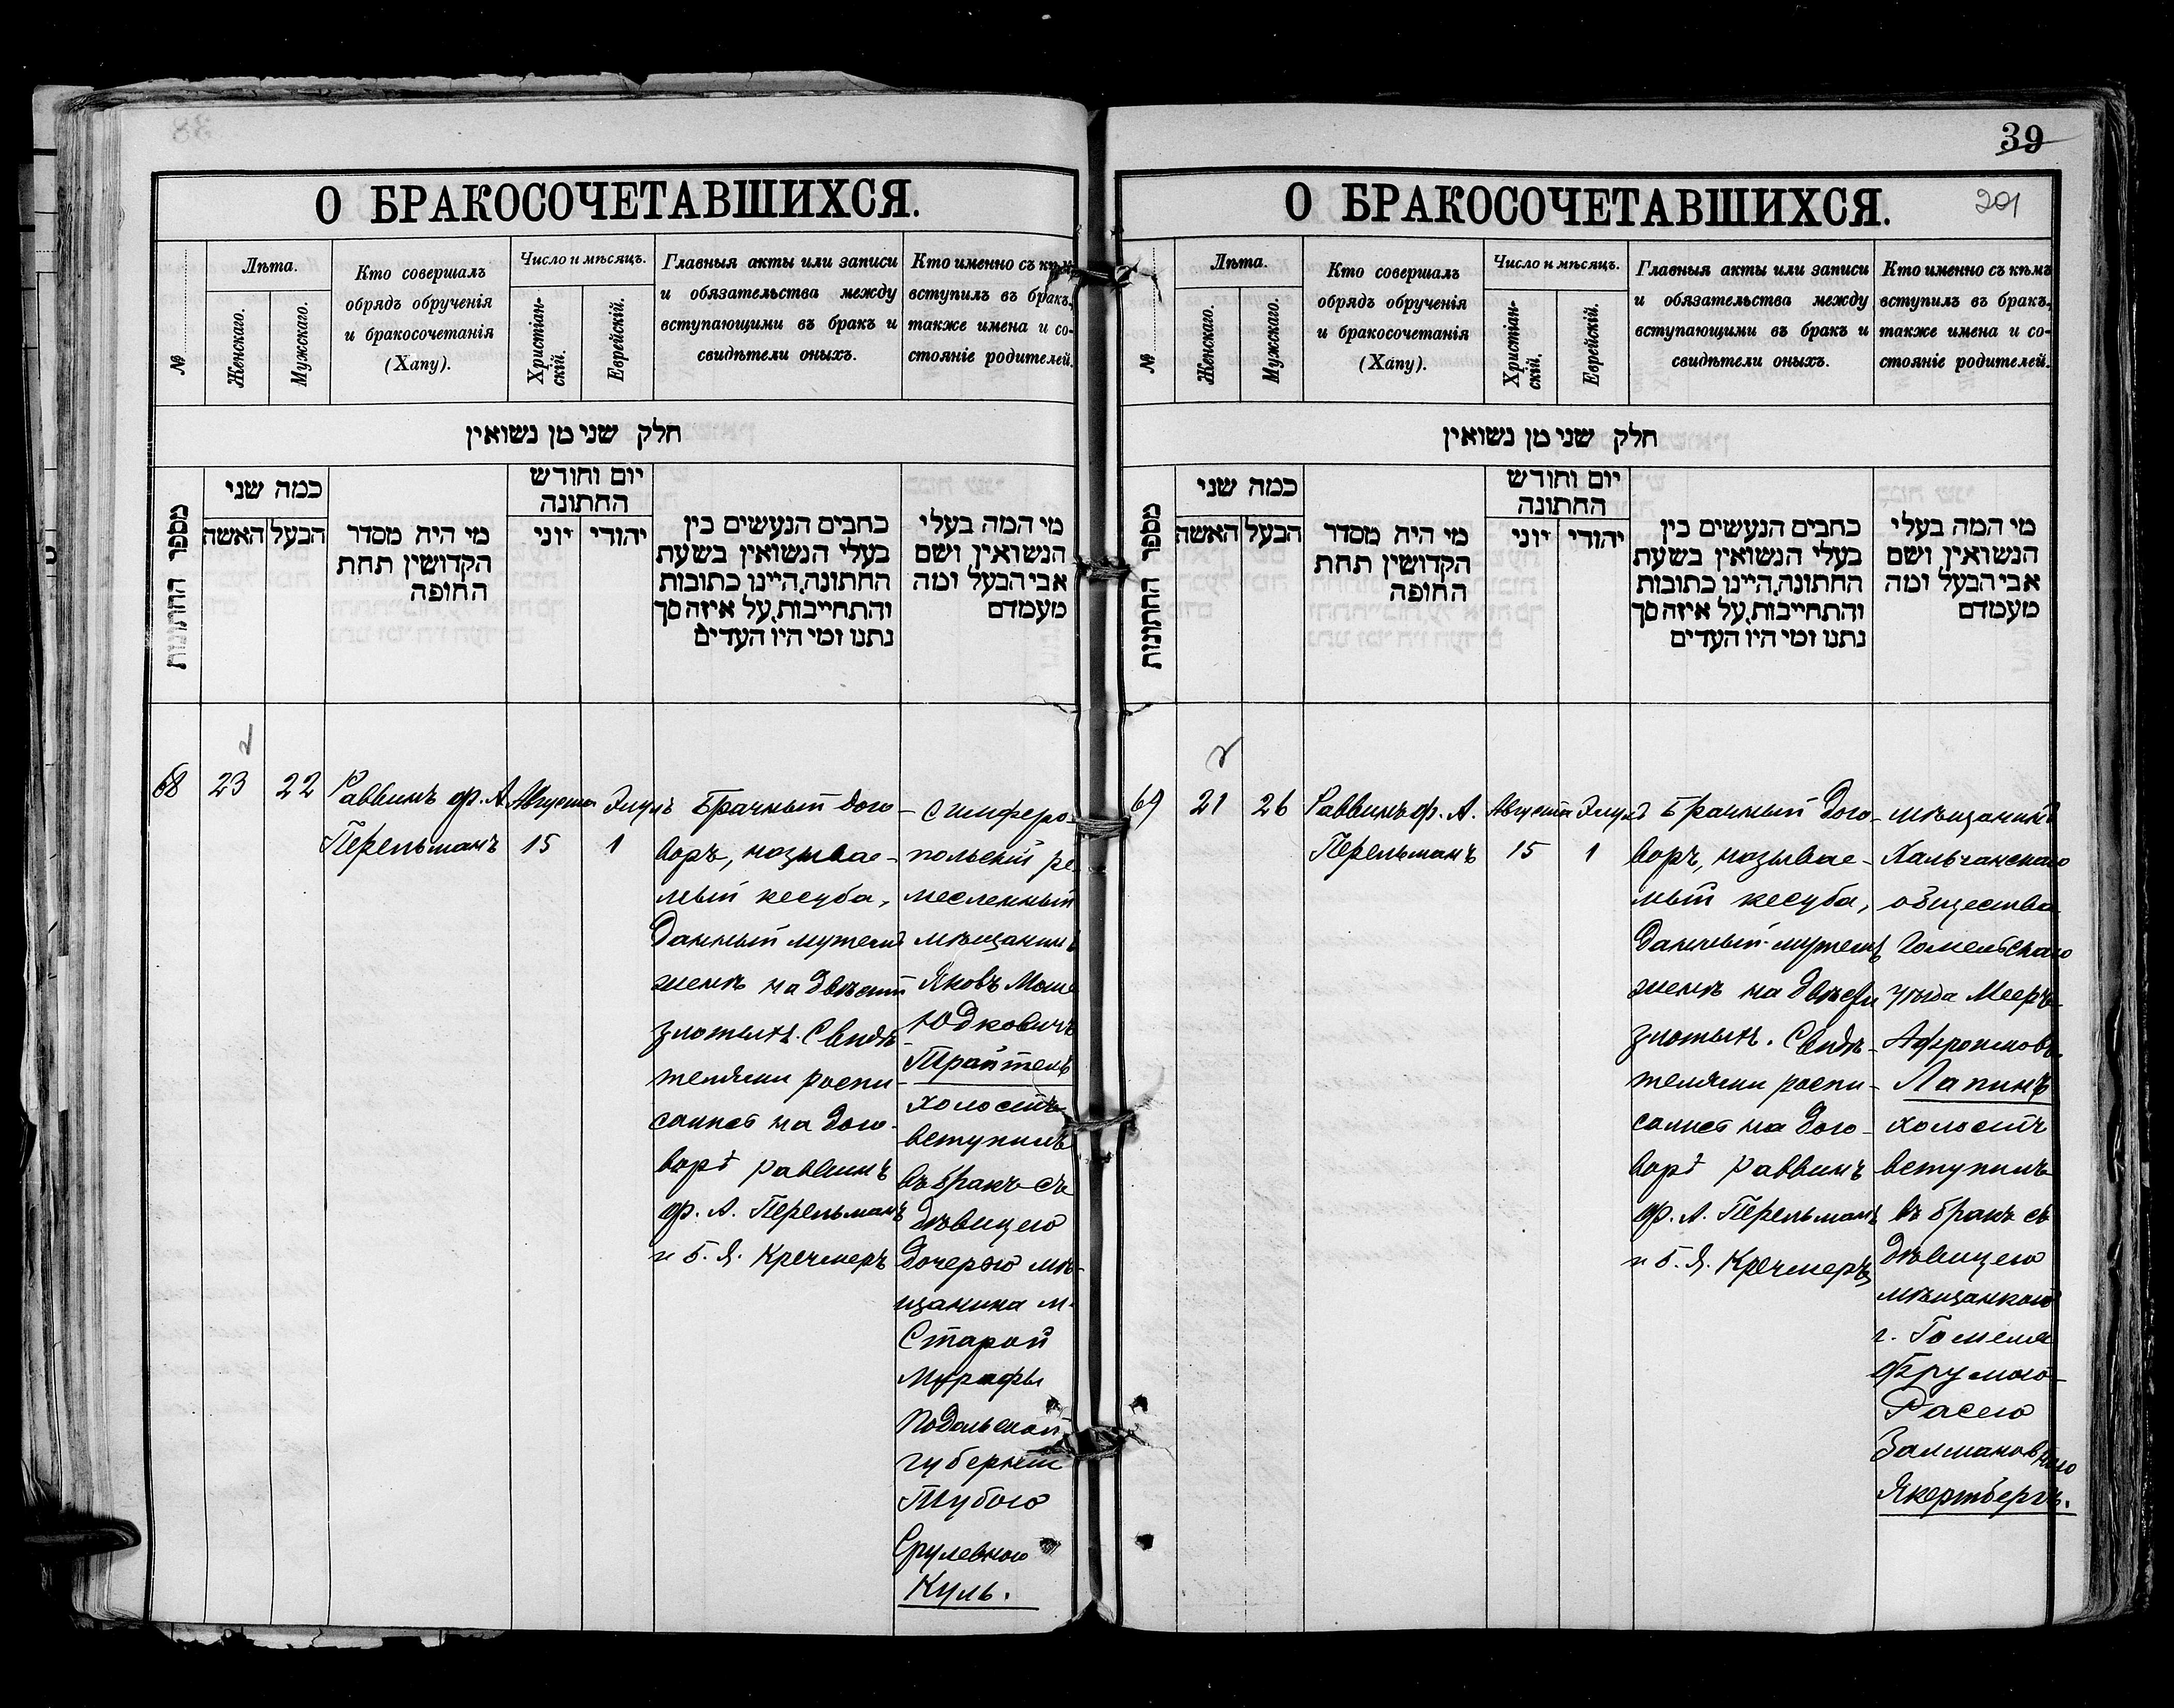 О БРАКОСОЧЕТАВШИХСЯ.
№
Лѣта.
Женскаго.
Мужскаго.
Кто совершалъ
обрядъ обрученія
и бракосочетанія
(Хапу).
Число и мѣсяцъ.
Христіан-
скій.
Еврейскій.
Главныя акты или записи
и обязательства между
вступающими въ бракъ и
свидѣтели оныхъ.
Кто именно съ кѣмъ
вступилъ въ бракъ,
также имена и со-
стояніе родителей.
חלק שני מן נשואין
מספר החתונות
כמה שני
האשה
הבעל
מי היה מסדר
הקדושין תחת
החופה
יום וחודש
החתונה
יוני
יהודי
כתבים הנעשים בין
בעלי הנשואין בשעת
החתונה, היינו כתובות
והתחייבות, על איזה סך
נתנו ומי היו העדים
מי המה בעלי
הנשואין ושם
אבי הבעל ומה
מעמדם
68
23
22
Раввинъ Ф. А.
Перельманъ
Августа
15
Элулъ
1
Брачный дого-
воръ, называе-
мый кесуба,
данный мужемъ
женѣ на двѣсти
злотыхъ. Свидѣ-
телями роспи-
сались на дого-
ворѣ раввинъ
Ф. А. Перельманъ
и Б. Я. Кречмеръ
Симферо-
польскій ре-
месленный
мѣщанинъ
Яковъ Моше
Юдковичъ
Трайтель
холостъ
вступилъ
въ бракъ съ
дѣвицею
дочерью мѣ-
щанина м.
Старой
Мурафы
Подольской
губерніи
Тубою
Срулевною
Куль.
39
201
О БРАКОСОЧЕТАВШИХСЯ.
№
Лѣта.
Женскаго.
Мужскаго.
Кто совершалъ
обрядъ обрученія
и бракосочетанія
(Хапу).
Число и мѣсяцъ.
Христіан-
скій.
Еврейскій.
Главныя акты или записи
и обязательства между
вступающими въ бракъ и
свидѣтели оныхъ.
Кто именно съ кѣмъ
вступилъ въ бракъ,
также имена и со-
стояніе родителей.
חלק שני מן נשואין
מספר החתונות
כמה שני
האשה
הבעל
מי היה מסדר
הקדושין תחת
החופה
יום וחודש
החתונה
יוני
יהודי
כתבים הנעשים בין
בעלי הנשואין בשעת
החתונה, היינו כתובות
והתחייבות, על איזה סך
נתנו ומי היו העדים
מי המה בעלי
הנשואין ושם
אבי הבעל ומה
מעמדם
69
21
26
Раввинъ Ф. А.
Перельманъ
Августа
15
Элулъ
1
Брачный дого-
воръ, называе-
мый кесуба,
данный мужемъ
женѣ на двѣсти
злотыхъ. Свидѣ-
телями роспи-
сались на дого-
ворѣ раввинъ
Ф. А. Перельманъ
и Б. Я. Кречмеръ
мѣщанинъ
Хальчанскаго
общества
Гомельскаго
уѣзда Мееръ
Афроимовъ
Лапинъ
холостъ
вступилъ
въ бракъ съ
дѣвицею
мѣщанкою
г. Гомеля
Фрумою-
Расею
Залмановною
Якертбергъ.